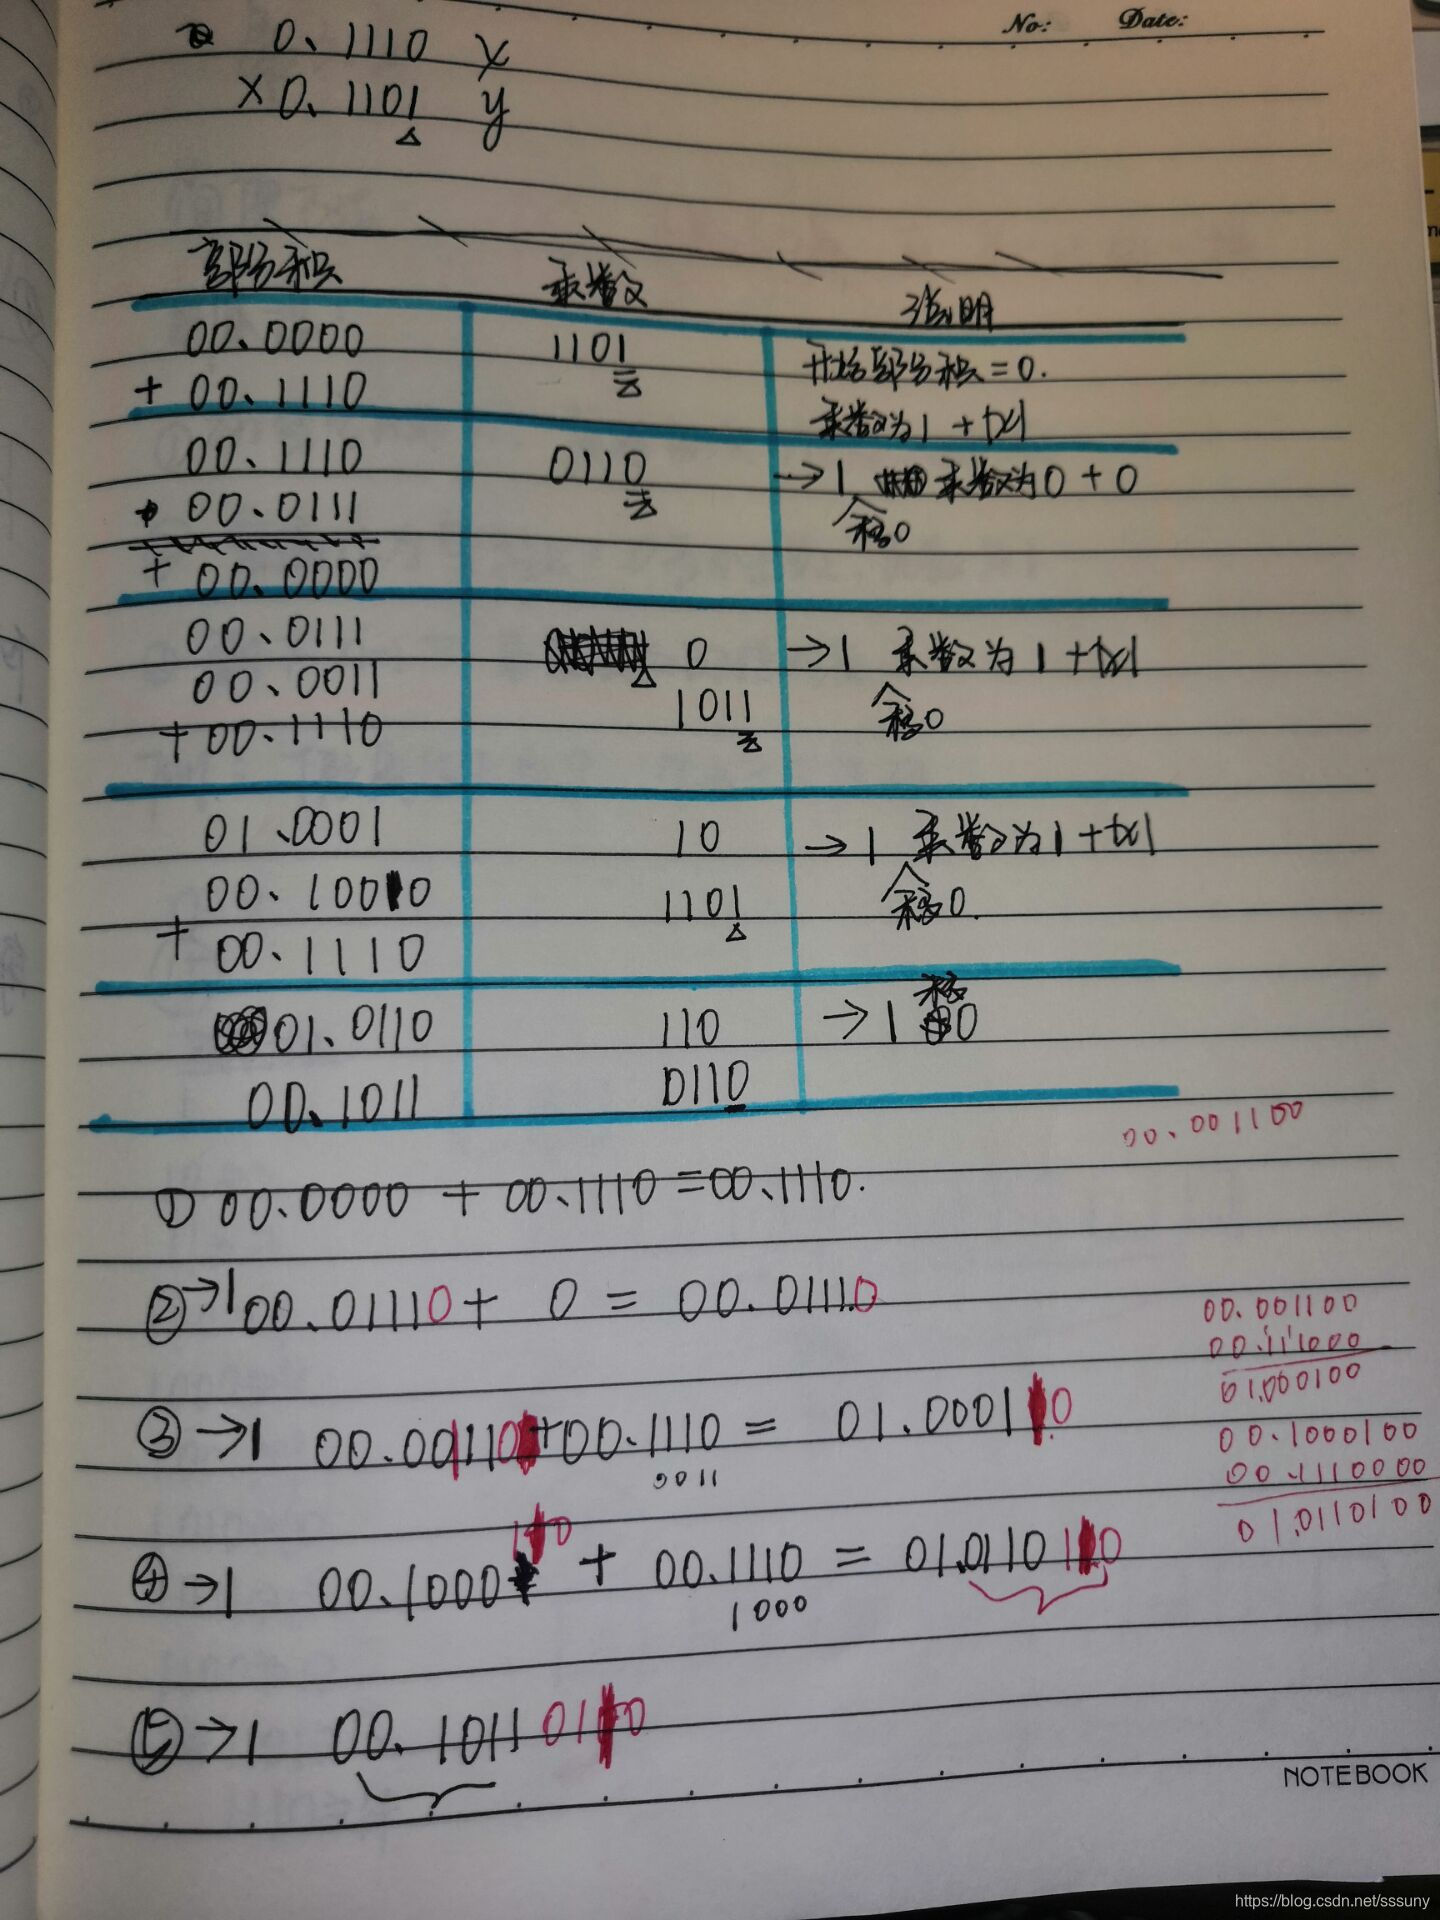 No: Date:
0.1110 x
×0.1101 y
部份积 乘数 说明
00.0000 1101 开始部份积=0.
+ 00.1110 乘数为1 +|x|
00.1110 0110 →1 乘数为0+0
00.0111 移0
+ 00.0000
00.0111 0 →1 乘数为1+|x|
00.0011 1011 移0
+00.1110
01.0001 10 →1 乘数为1+|x|
00.1000 1101 移0.
+ 00.1110
01.0110 110 →1 移0
00.1011 0110
00.001100
① 00.0000 + 00.1110 =00.1110.
②→1 00.01110+ 0 = 00.01110
00.001100
00.111000
01.000100
③→1 00.00110+00.1110 = 01.00010
0011
00.1000100
00.1110000
01.0110100
④→1 00.100010 + 00.1110 = 01.011010
1000
⑤→1 00.1011010
NOTEBOOK
https://blog.csdn.net/sssuny